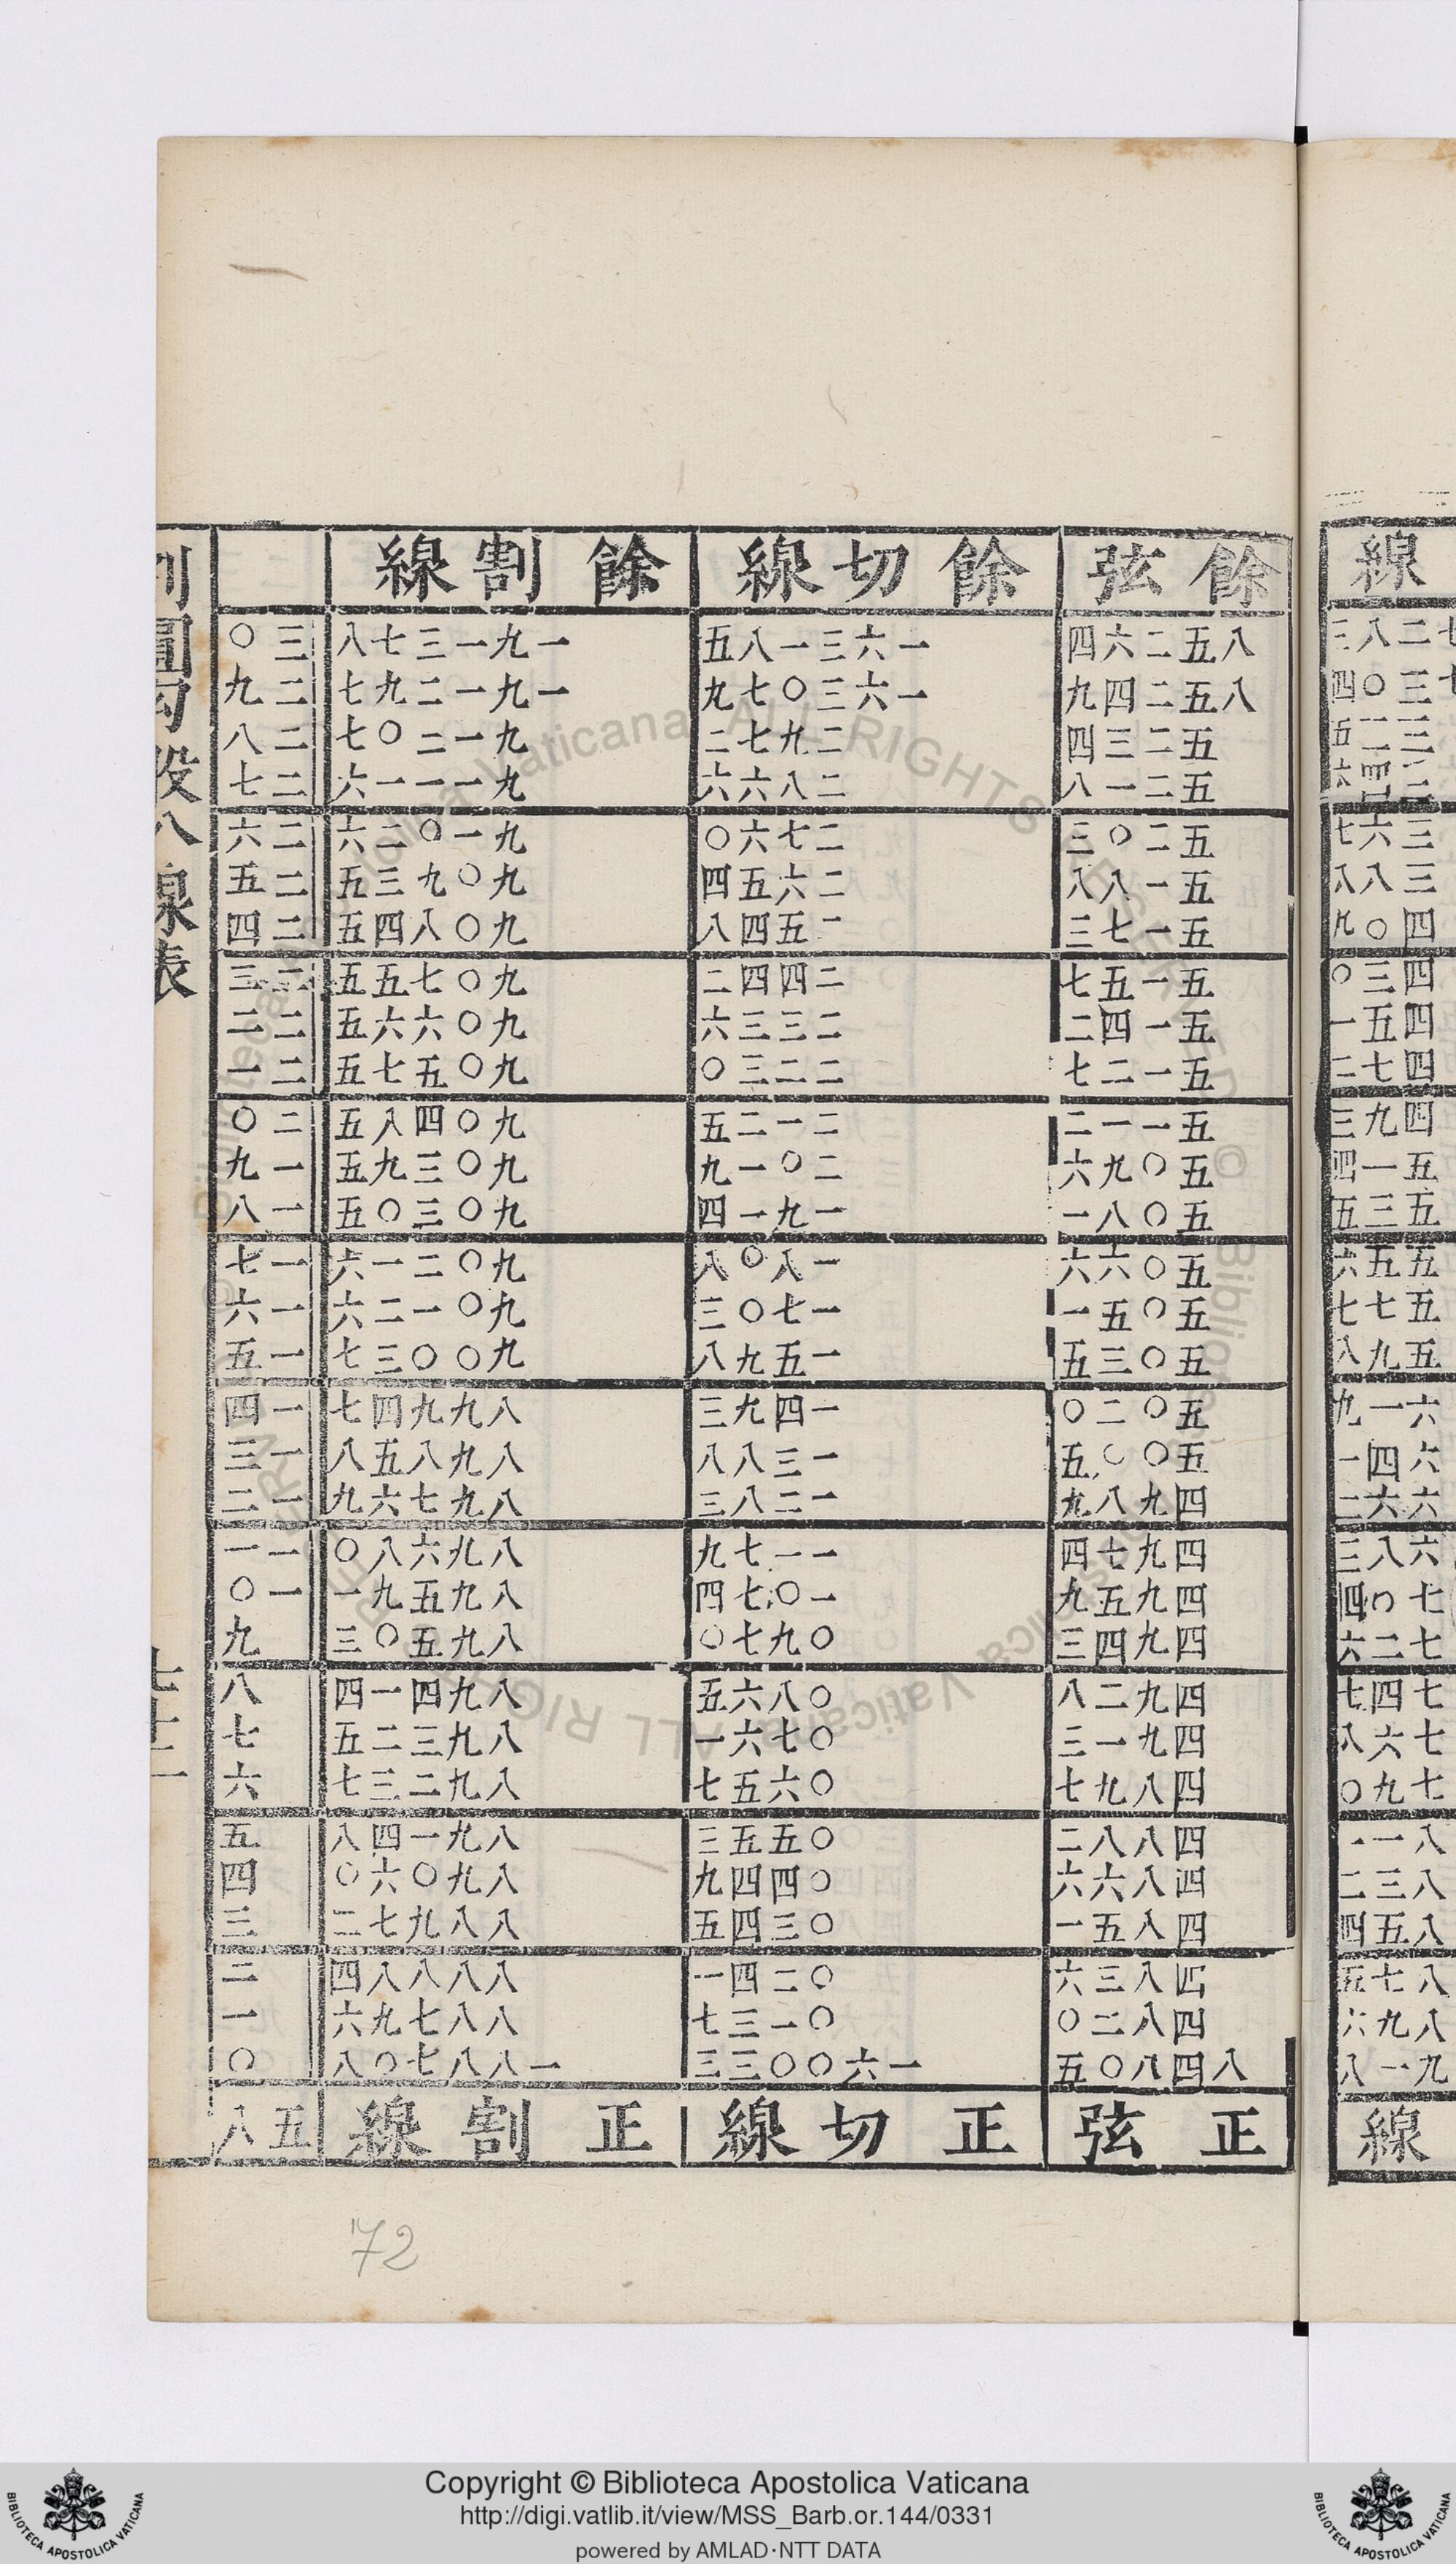 線
七二八三
七三〇四
三二五
三四六
三六七
三八八
四〇九
四三〇
四五一
四七二
四九三
五一四
五三五
五五六
五七七
五九八
六一九
六四一
六六二
六八三
七〇四
七二六
七四七
七六八
七九〇
八一一
八三二
八五四
八七五
八九六
九一八
線
餘弦 餘切線 餘割線
八五二六四 一六三一八五 一九一三七八 三〇
八五二四九 一六三〇七九 一九一二九七 二九
五二三四 二九七二 九一二〇七 二八
五二一八 二八六六 九一一一六 二七
五二〇三 二七六〇 九一〇二六 二六
五一八八 二六五四 九〇九三五 二五
五一七三 二五四八 九〇八四五 二四
五一五七 二四四二 九〇七五五 二三
五一四二 二三三六 九〇六六五 二二
五一二七 二二三〇 九〇五七五 二一
五一一二 二一二五 九〇四八五 二〇
五〇九六 二〇一九 九〇三九五 一九
五〇八一 一九一四 九〇三〇五 一八
五〇六六 一八〇八 九〇二一六 一七
五〇五一 一七〇三 九〇一二六 一六
五〇三五 一五九八 九〇〇三七 一五
五〇二〇 一四九三 八九九四七 一四
五〇〇五 一三八八 八九八五八 一三
四九八九 一二八三 八九七六九 一二
四九七四 一一七九 八九六八〇 一一
四九五九 一〇七四 八九五九一 一〇
四九四三 〇九七〇 八九五〇三 九
四九二八 〇八六五 八九四一四 八
四九一三 〇七六一 八九三二五 七
四八九七 〇六五七 八九二三七 六
四八八二 〇五五三 八九一四八 五
四八六六 〇四四九 八九〇六〇 四
四八五一 〇三四五 八八九七二 三
四八三六 〇二四一 八八八八四 二
四八二〇 〇一三七 八八七九六 一
八四八〇五 一六〇〇三三 一八八七〇八 〇
正弦 正切線 正割線 五八
割圓勾股八線表
七十二
72
Copyright © Biblioteca Apostolica Vaticana
http://digi.vatlib.it/view/MSS_Barb.or.144/0331
powered by AMLAD·NTT DATA